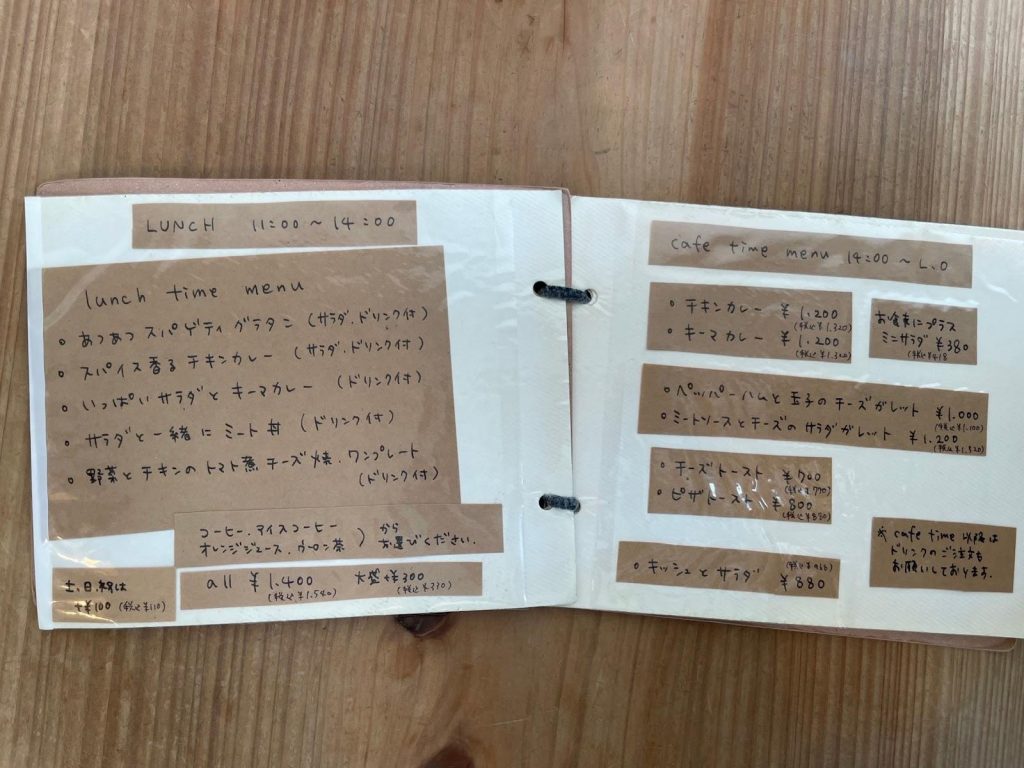 LUNCH 11:00 ~ 14:00
lunch time menu
• あつあつ スパゲティ グラタン (サラダ、ドリンク付)
• スパイス香る チキンカレー (サラダ、ドリンク付)
• いっぱい サラダと キーマカレー (ドリンク付)
• サラダと一緒に ミート丼 (ドリンク付)
• 野菜とチキンのトマト煮チーズ焼、ワンプレート
(ドリンク付)
コーヒー、アイスコーヒー
オレンジジュース、ウーロン茶 ) から
お選びください.
土、日、祝は
+¥100 (税込¥110)
all ¥1.400 大盛+¥300
(税込¥1.540) (税込¥330)
cafe time menu 14:00 ~ L.O
• チキンカレー ¥1.200
(税込¥1.320)
• キーマカレー ¥1.200
(税込¥1.320)
お食事にプラス
ミニサラダ ¥380
(税込¥418
• ペッパーハムと玉子のチーズガレット ¥1.000
(税込¥1.100)
• ミートソースとチーズのサラダガレット ¥1.200
(税込¥1.320)
• チーズトースト ¥700
(税込¥770)
• ピザトースト ¥800
(税込¥880)
• キッシュとサラダ ¥880
(税込¥968)
※ cafe time 以降は
ドリンクのご注文も
お願いしております.